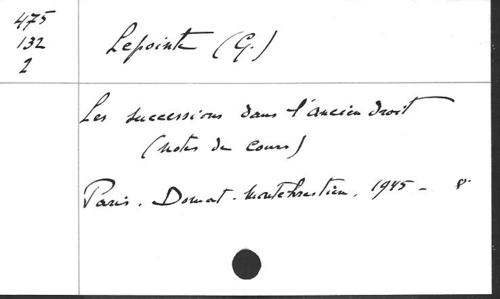 475
132
2
Lepointe (G.)
Les successions dans l'ancien droit
(notes de cours)
Paris. Domat. Montchrestien. 1945 - 8°